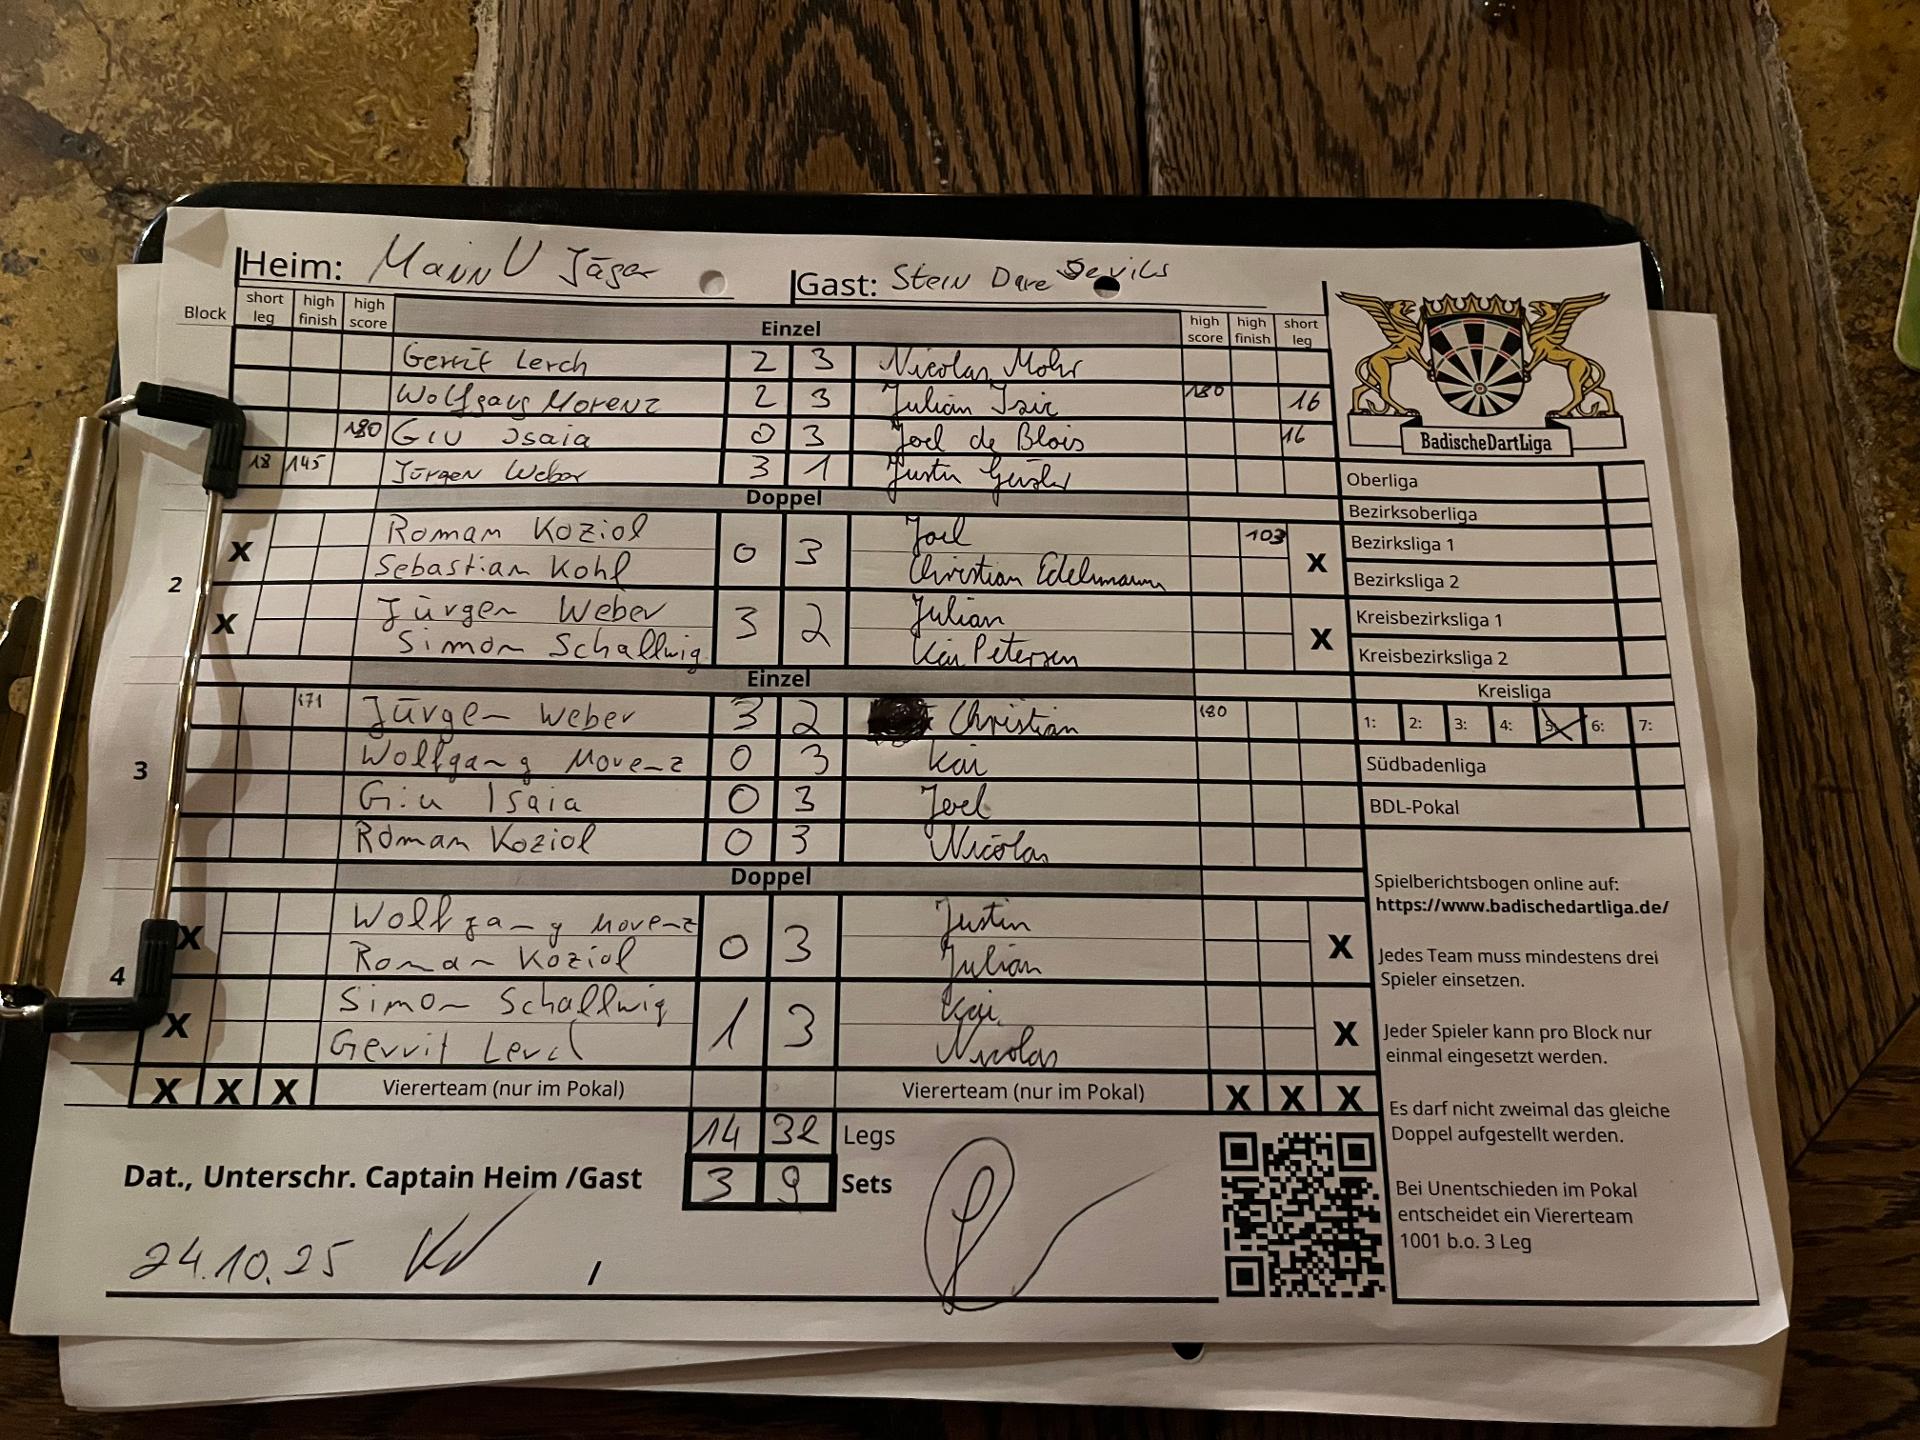 Heim: MannU Jäger Gast: Stein Dare Devils
Block short leg high finish high score Einzel high score high finish short leg
Gerrit Lerch 2 3 Nicolas Mohr
Wolfgang Morenz 2 3 Julian 180 16
180 Giu Isaia 0 3 Joel de Blois 16
18 145 Jürgen Weber 3 1 Justin
Doppel
2
X Roman Koziol 0 3 Joel 103 X
Sebastian Kohl Christian Edelmann
X Jürgen Weber 3 2 Julian X
Simon Schallwig Kai Petersen
Einzel
3
171 Jürgen Weber 3 2 Christian 180
Wolfgang Morenz 0 3 Kai
Giu Isaia 0 3 Joel
Roman Koziol 0 3 Nicolas
Doppel
4
X Wolfgang Morenz 0 3 Justin X
Roman Koziol Julian
X Simon Schallwig 1 3 Kai X
Gerrit Lerch Nicolas
X X X Viererteam (nur im Pokal) Viererteam (nur im Pokal) X X X
14 32 Legs
Dat., Unterschr. Captain Heim /Gast 3 9 Sets
24.10.25 /
BadischeDartLiga
Oberliga
Bezirksoberliga
Bezirksliga 1
Bezirksliga 2
Kreisbezirksliga 1
Kreisbezirksliga 2
Kreisliga
1: 2: 3: 4: 5: 6: 7:
Südbadenliga
BDL-Pokal
Spielberichtsbogen online auf:
https://www.badischedartliga.de/
Jedes Team muss mindestens drei
Spieler einsetzen.
Jeder Spieler kann pro Block nur
einmal eingesetzt werden.
Es darf nicht zweimal das gleiche
Doppel aufgestellt werden.
Bei Unentschieden im Pokal
entscheidet ein Viererteam
1001 b.o. 3 Leg